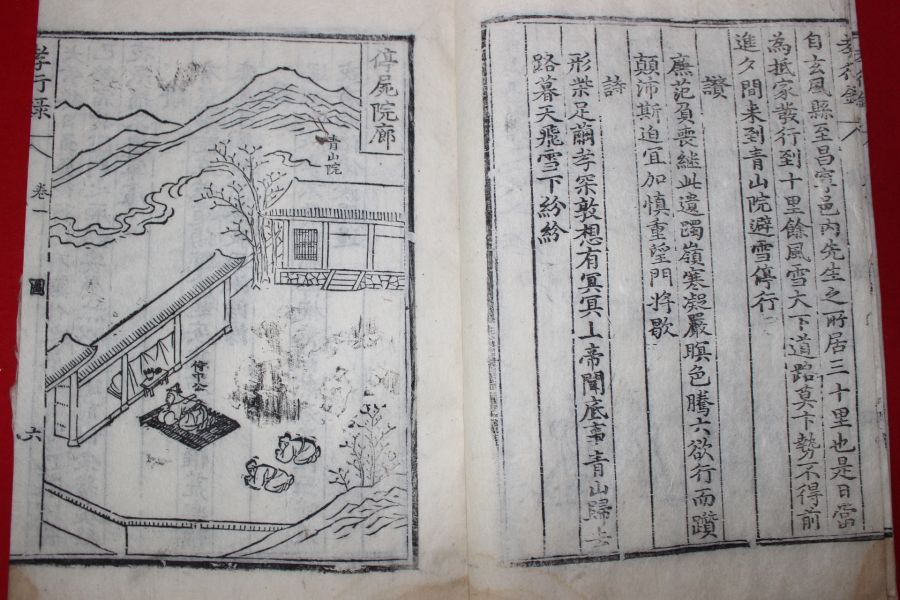 孝行錄
自玄風縣至昌寧邑內先生之所居三十里也是日當
為抵家發行到十里餘風雪大下道路莫卞勢不得前
進夕間来到青山院避雪停行
讚
廉范負喪継此遺躅嶺寒凝嚴暝色騰六欲行而躓
顛沛斯迫宜加慎重望門將歇
詩
形柴足繭孝深敦想有冥冥上帝聞底事青山歸去
路暮天飛雪下紛紛
停屍院廊
青山院
孝行録
卷一
圖
六